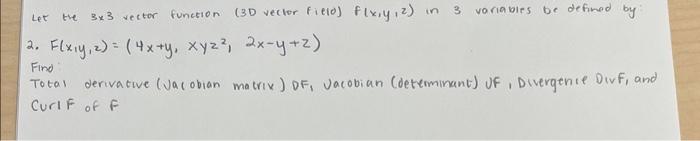 Let the 3x3 vector function (3D vector field) f(x,y,z) in 3 variables be defined by:
2. F(x,y,z) = (4x+y, xyz², 2x-y+z)
Find:
Total derivative (Jacobian matrix) DF, Jacobian (determinant) JF, Divergence DivF, and
Curl F of F